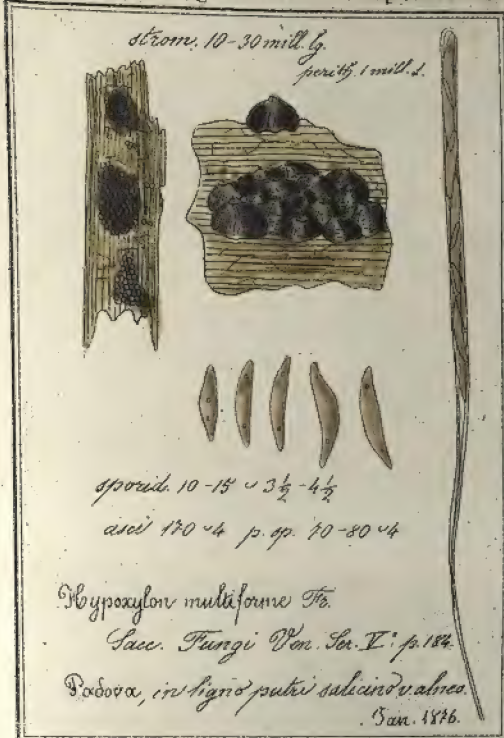 strom. 10-30 mill. lg.
perith. 1 mill. d.
sporid. 10-15 ᴗ 3½-4½
asci 170 ᴗ 4 p. sp. 70-80 ᴗ 4
Hypoxylon multiforme Fr.
Sacc. Fungi Ven. Ser. V: p. 184.
Padova, in ligno putri salicino v. alneo.
Jan. 1876.